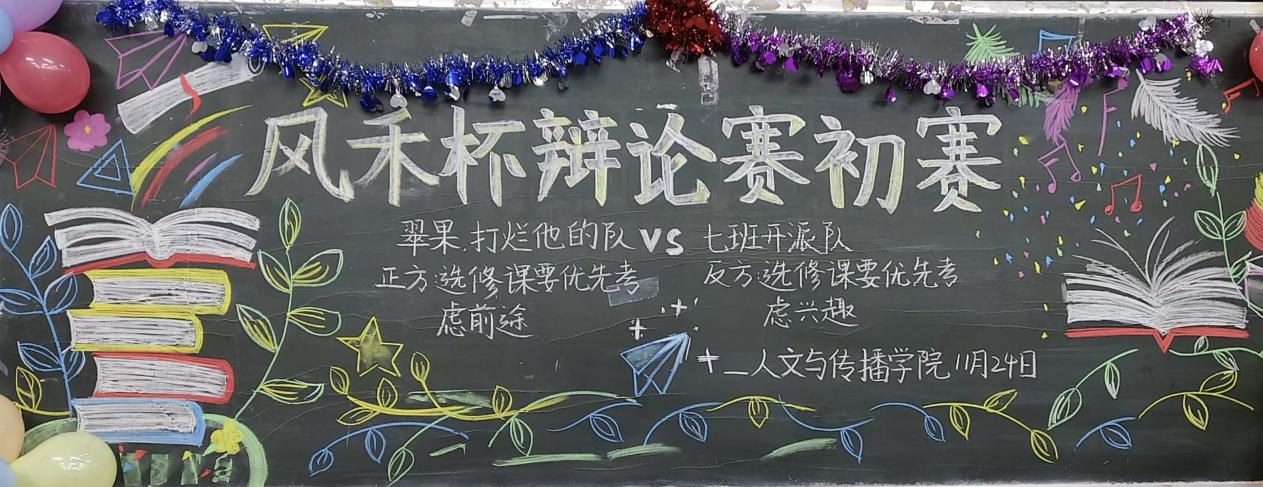 风禾杯辩论赛初赛
翠果,打烂他的队 VS 七班开派队
正方:选修课要优先考虑前途
反方:选修课要优先考虑兴趣
—人文与传播学院 11月24日